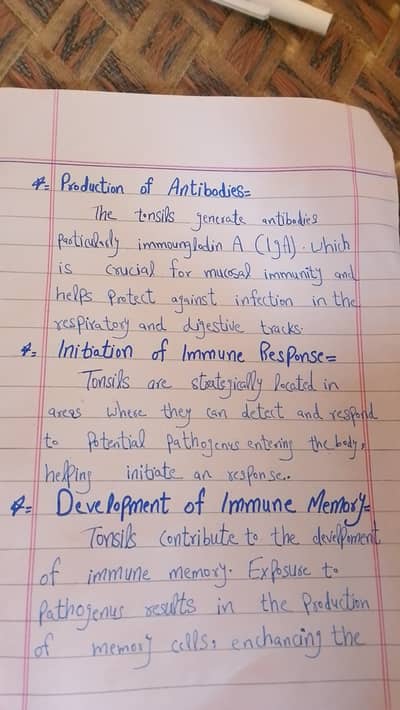 *= Production of Antibodies=
The tonsils generate antibodies
particularly immounglodin A (IgA). which
is crucial for mucosal immunity and
helps Protect against infection in the
respiratory and digestive tracks.
*= Initiation of Immune Response=
Tonsils are strategically located in
areas where they can detect and respond
to Potential pathogenus entering the body,
helping initiate an response..
*= Development of Immune Memory=
Tonsils Contribute to the develpoment
of immune memory. Exposuse to
Pathogenus results in the Production
of memory cells, enchancing the